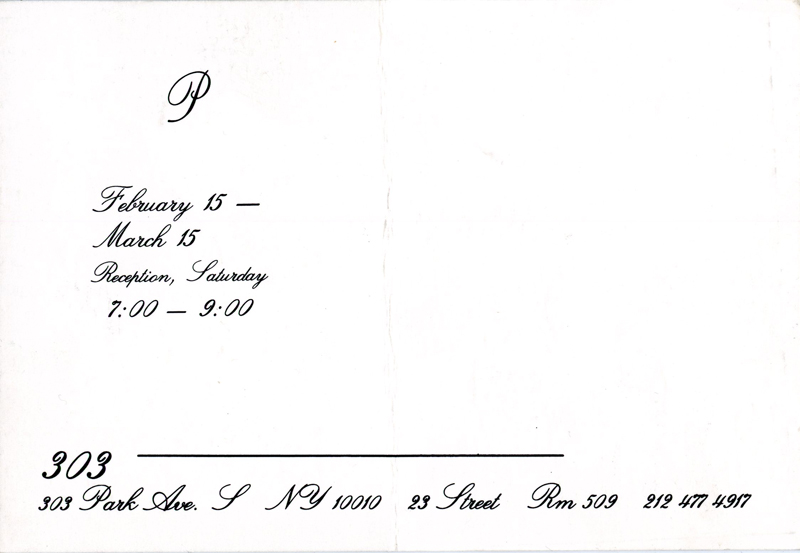 P
February 15 —
March 15
Reception, Saturday
7:00 — 9:00
303
303 Park Ave. S NY 10010 23 Street Rm 509 212 477 4917